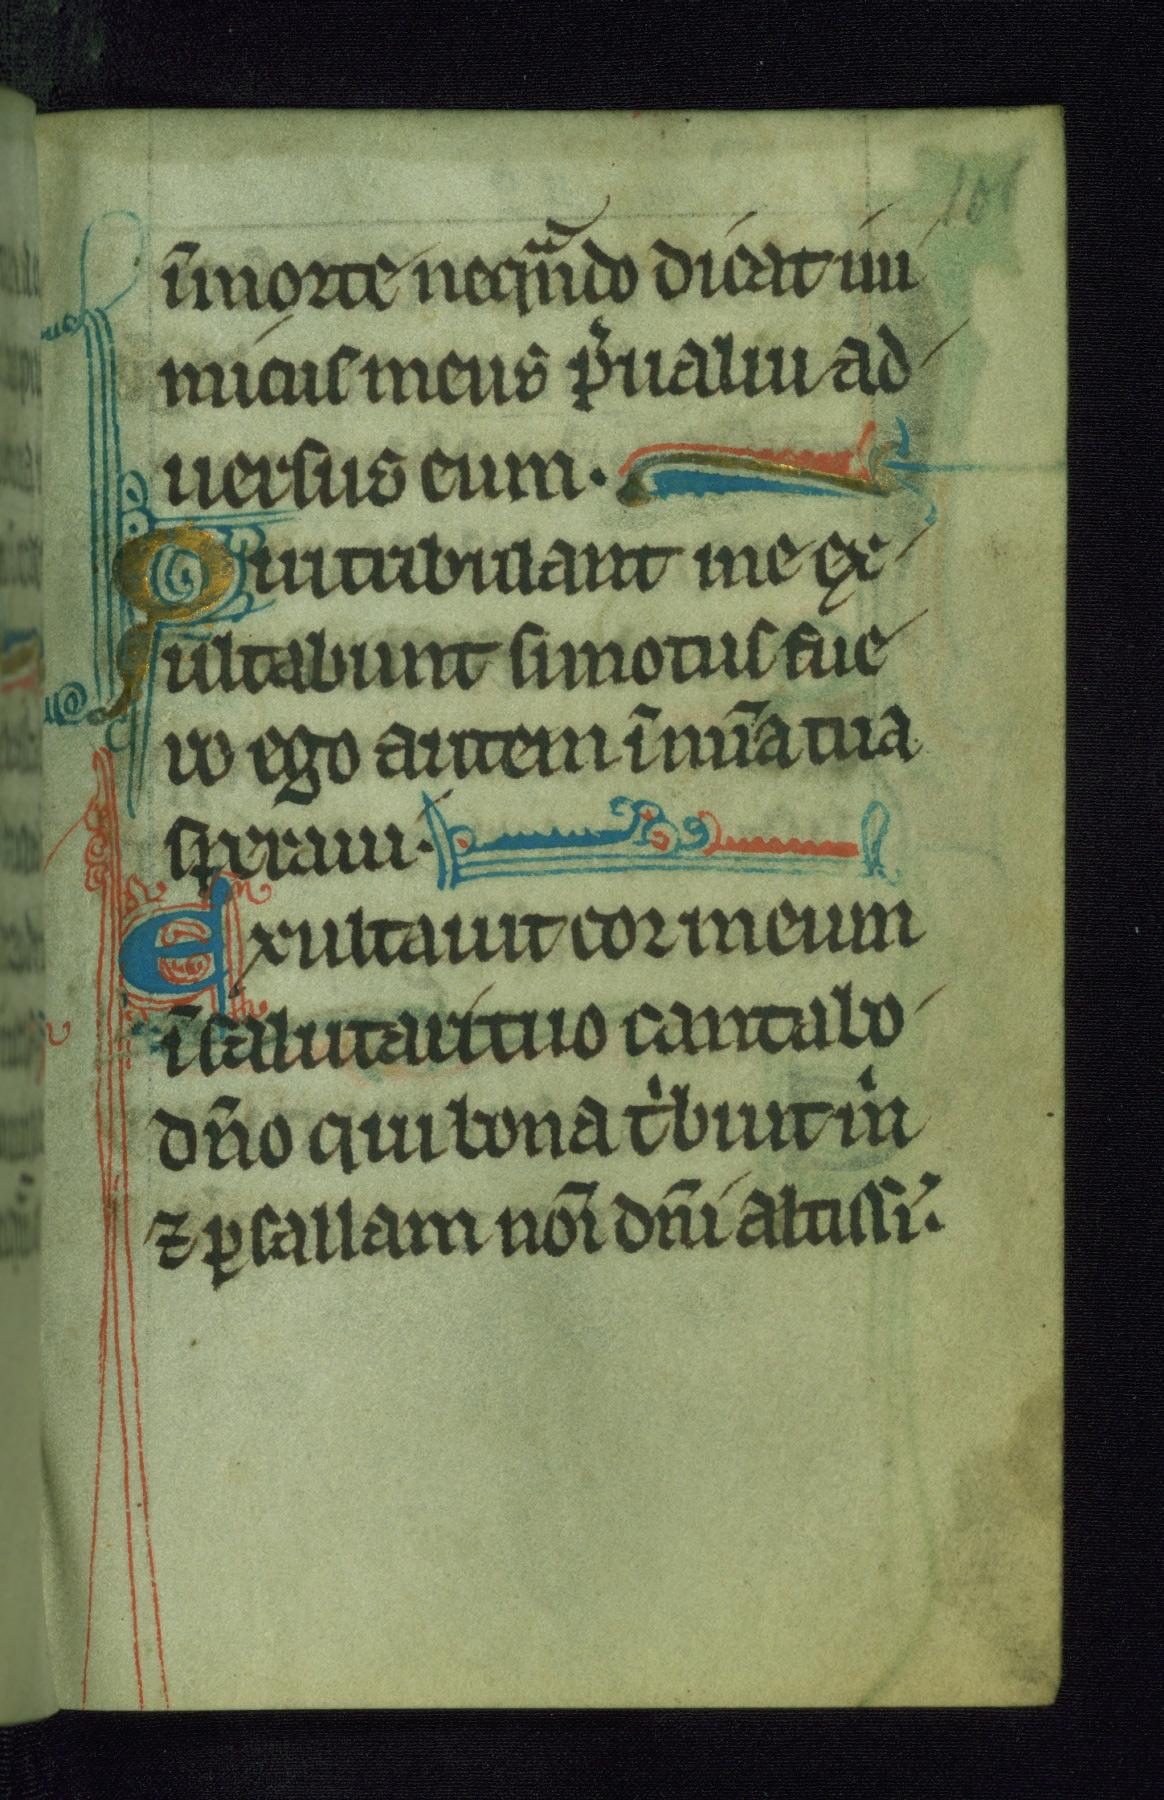 101
ī morte neqn̄do dicat ini
micus meus p̾ualui ad
uersus eum.
Qui tribulant me ex
ultabunt si motus fue
ro ego autem ī mīa tua
speraui.
Exultauit cor meum
ī salutari tuo cantabo
dn̄o qui bona tⁱbuit mⁱ
⁊ psallam noī dn̄i altissi.